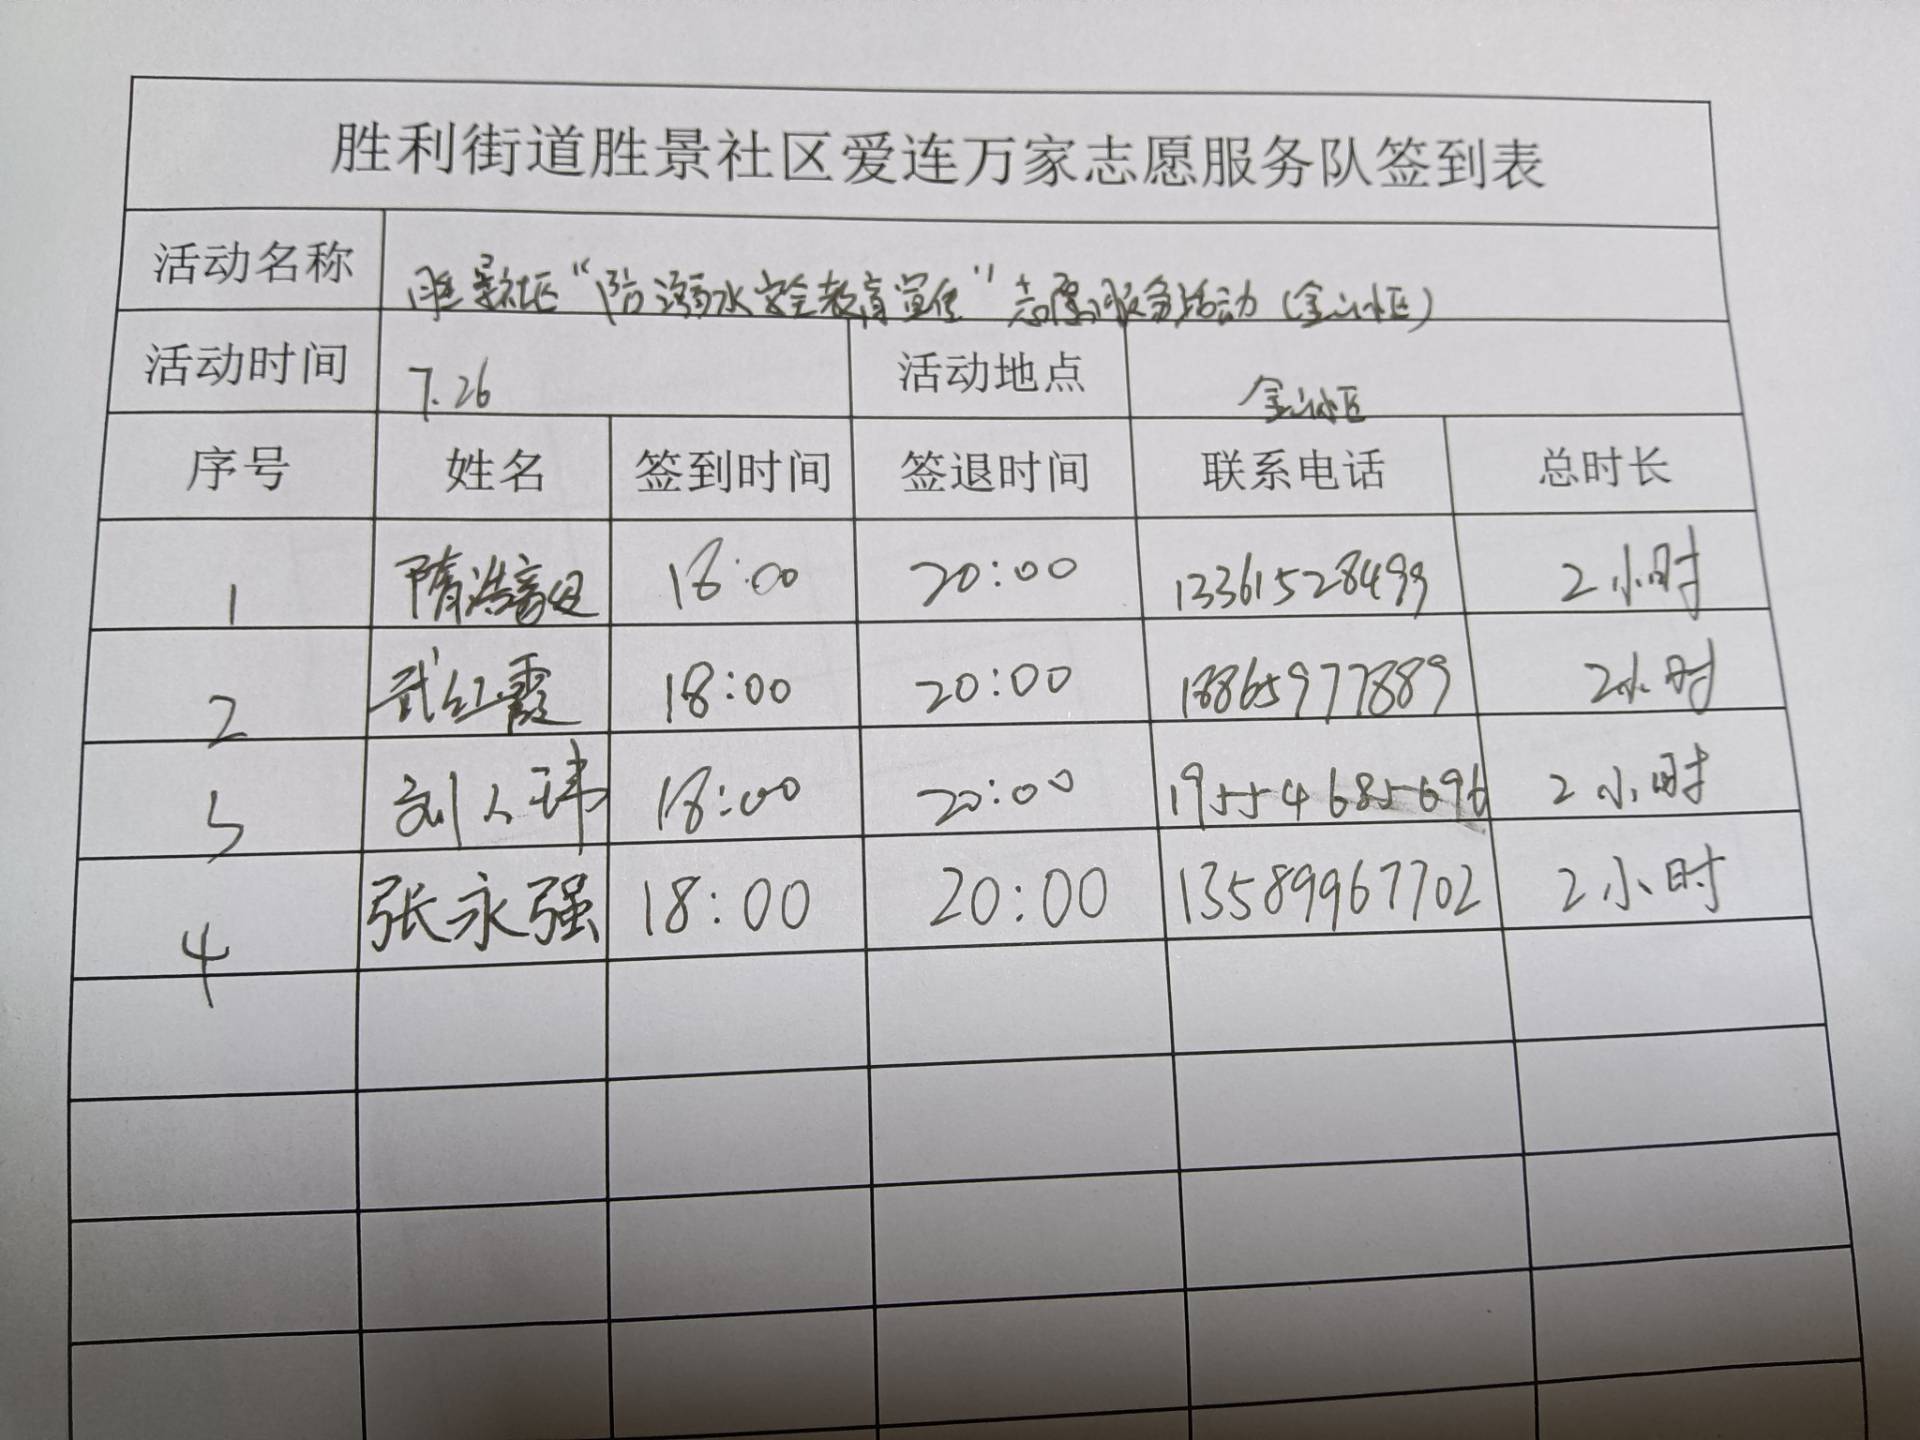 胜利街道胜景社区爱连万家志愿服务队签到表
活动名称 胜景社区“防溺水安全教育宣传”志愿服务活动(金小区)
活动时间 7.26 活动地点 小区
序号 姓名 签到时间 签退时间 联系电话 总时长
1 隋浩 18:00 20:00 13361528499 2小时
2 武红霞 18:00 20:00 18865977889 2小时
3 刘人玮 18:00 20:00 19554685696 2小时
4 张永强 18:00 20:00 13589967702 2小时